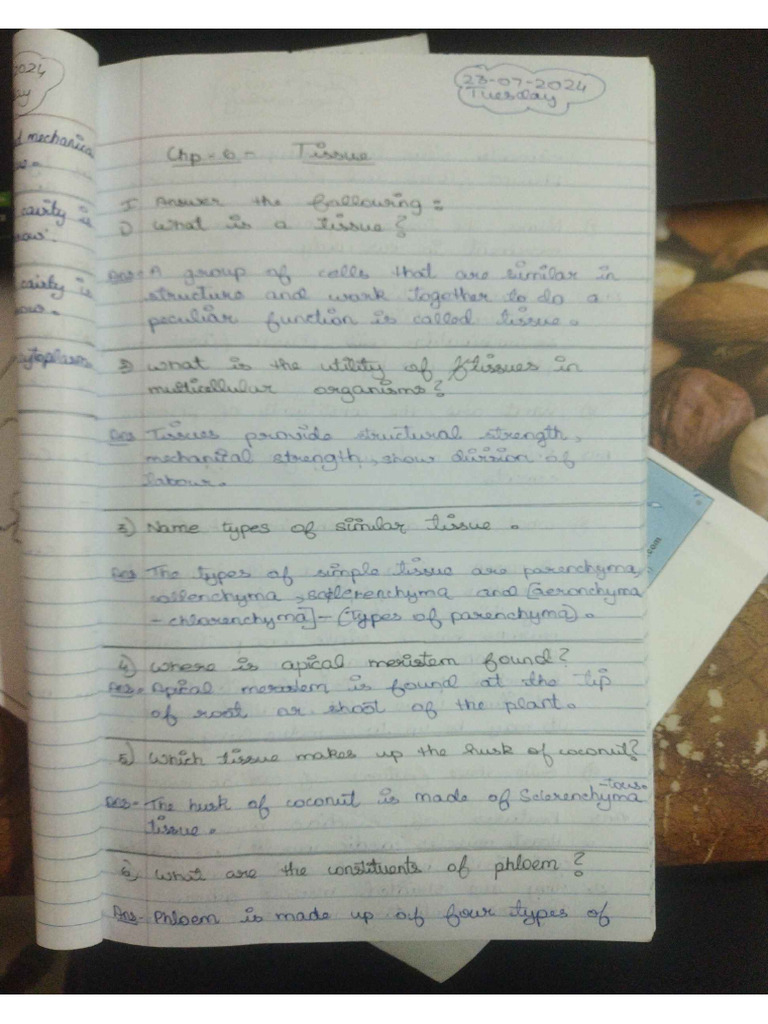 2024
ay
d mechanica
cavity is
now.
cavity is
now.
cytoplasm
23-07-2024
Tuesday
Chp-6- Tissue
I Answer the following:
1) What is a tissue?
Ans- A group of cells that are similar in
structure and work together to do a
peculiar function is called tissue.
2) What is the utility of tissues in
multicellular organisms?
Ans Tissues provide structural strength,
mechanical strength, show division of
labour.
3) Name types of similar tissue.
Ans The types of simple tissue are parenchyma,
collenchyma, sclerenchyma and [aeronchyma
-chlorenchyma]-(types of parenchyma).
4) Where is apical meristem found?
Ans- Apical meristem is found at the tip
of root or shoot of the plant.
5) Which tissue makes up the husk of coconut?
Ans- The husk of coconut is made of Sclerenchyma
-tous.
tissue.
6) What are the constituents of phloem?
Ans- Phloem is made up of four types of
.com